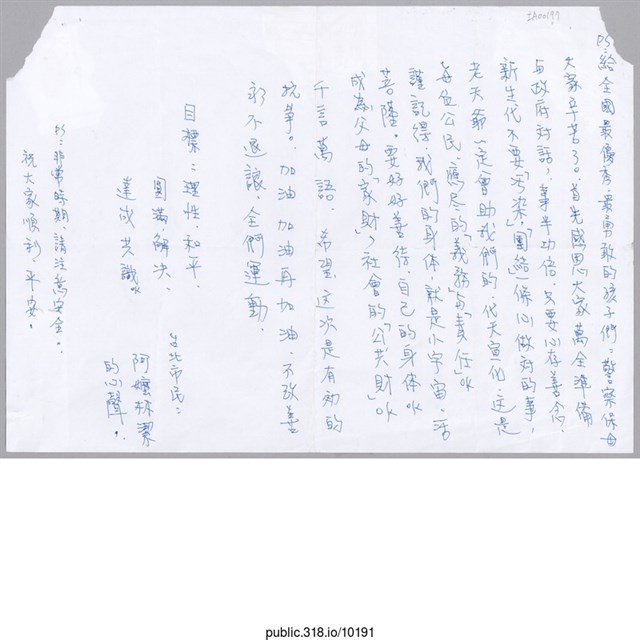 IA00197
PS:給全國最優秀、最勇敢的孩子們:警察保母
大家辛苦了。首先感恩大家萬全準備
與政府對話,事半功倍。只要心存善念,
新生代不要「污染」,「團結」一條心做對的事,
老天爺一定會助我們的、代天宣化、這是
每位公民、應尽的「義務」与「責任」OK
謹記得、我們的身体、就是小宇宙、活
菩薩。要好好善待、自己的身体OK
成為父母的「家財」、社會的「公共財」OK
千言萬語、希望這次是有初的
抗爭。加油加油再加油、不改善
永不退讓、全們運動、
目標:理性、和平、
圓滿、解決、
達成共識OK
台北市民:
阿嬤林潔
的心聲。
PS:非常時期、請注意安全。
祝大家順利、平安。
public.318.io/10191